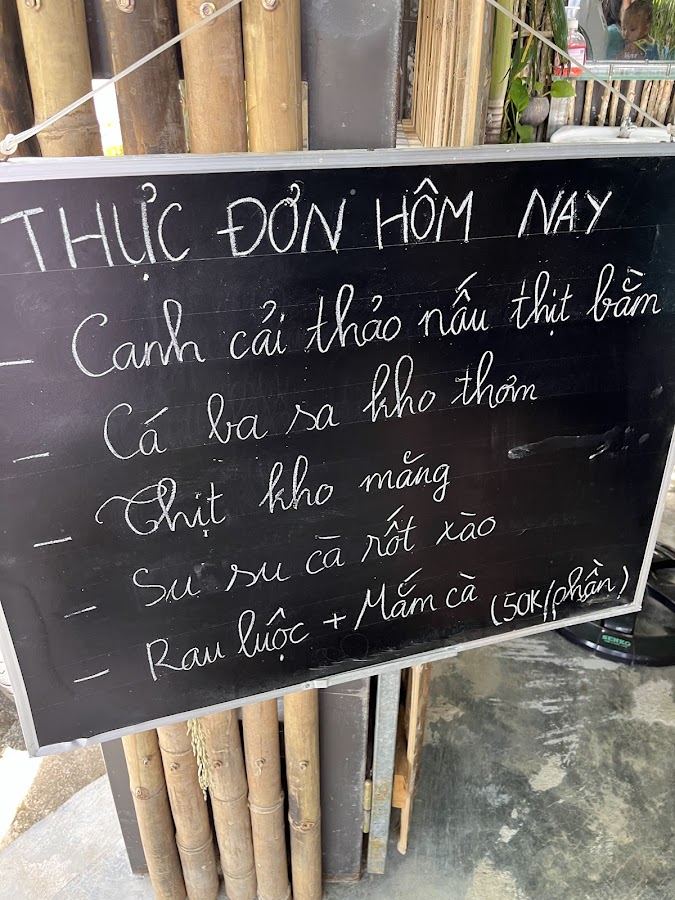 THỰC ĐƠN HÔM NAY
- Canh cải thảo nấu thịt bằm
- Cá ba sa kho thơm
- Thịt kho mắng
- Su su cà rốt xào
- Rau luộc + Mắm cà (50K/phần)
SENKO